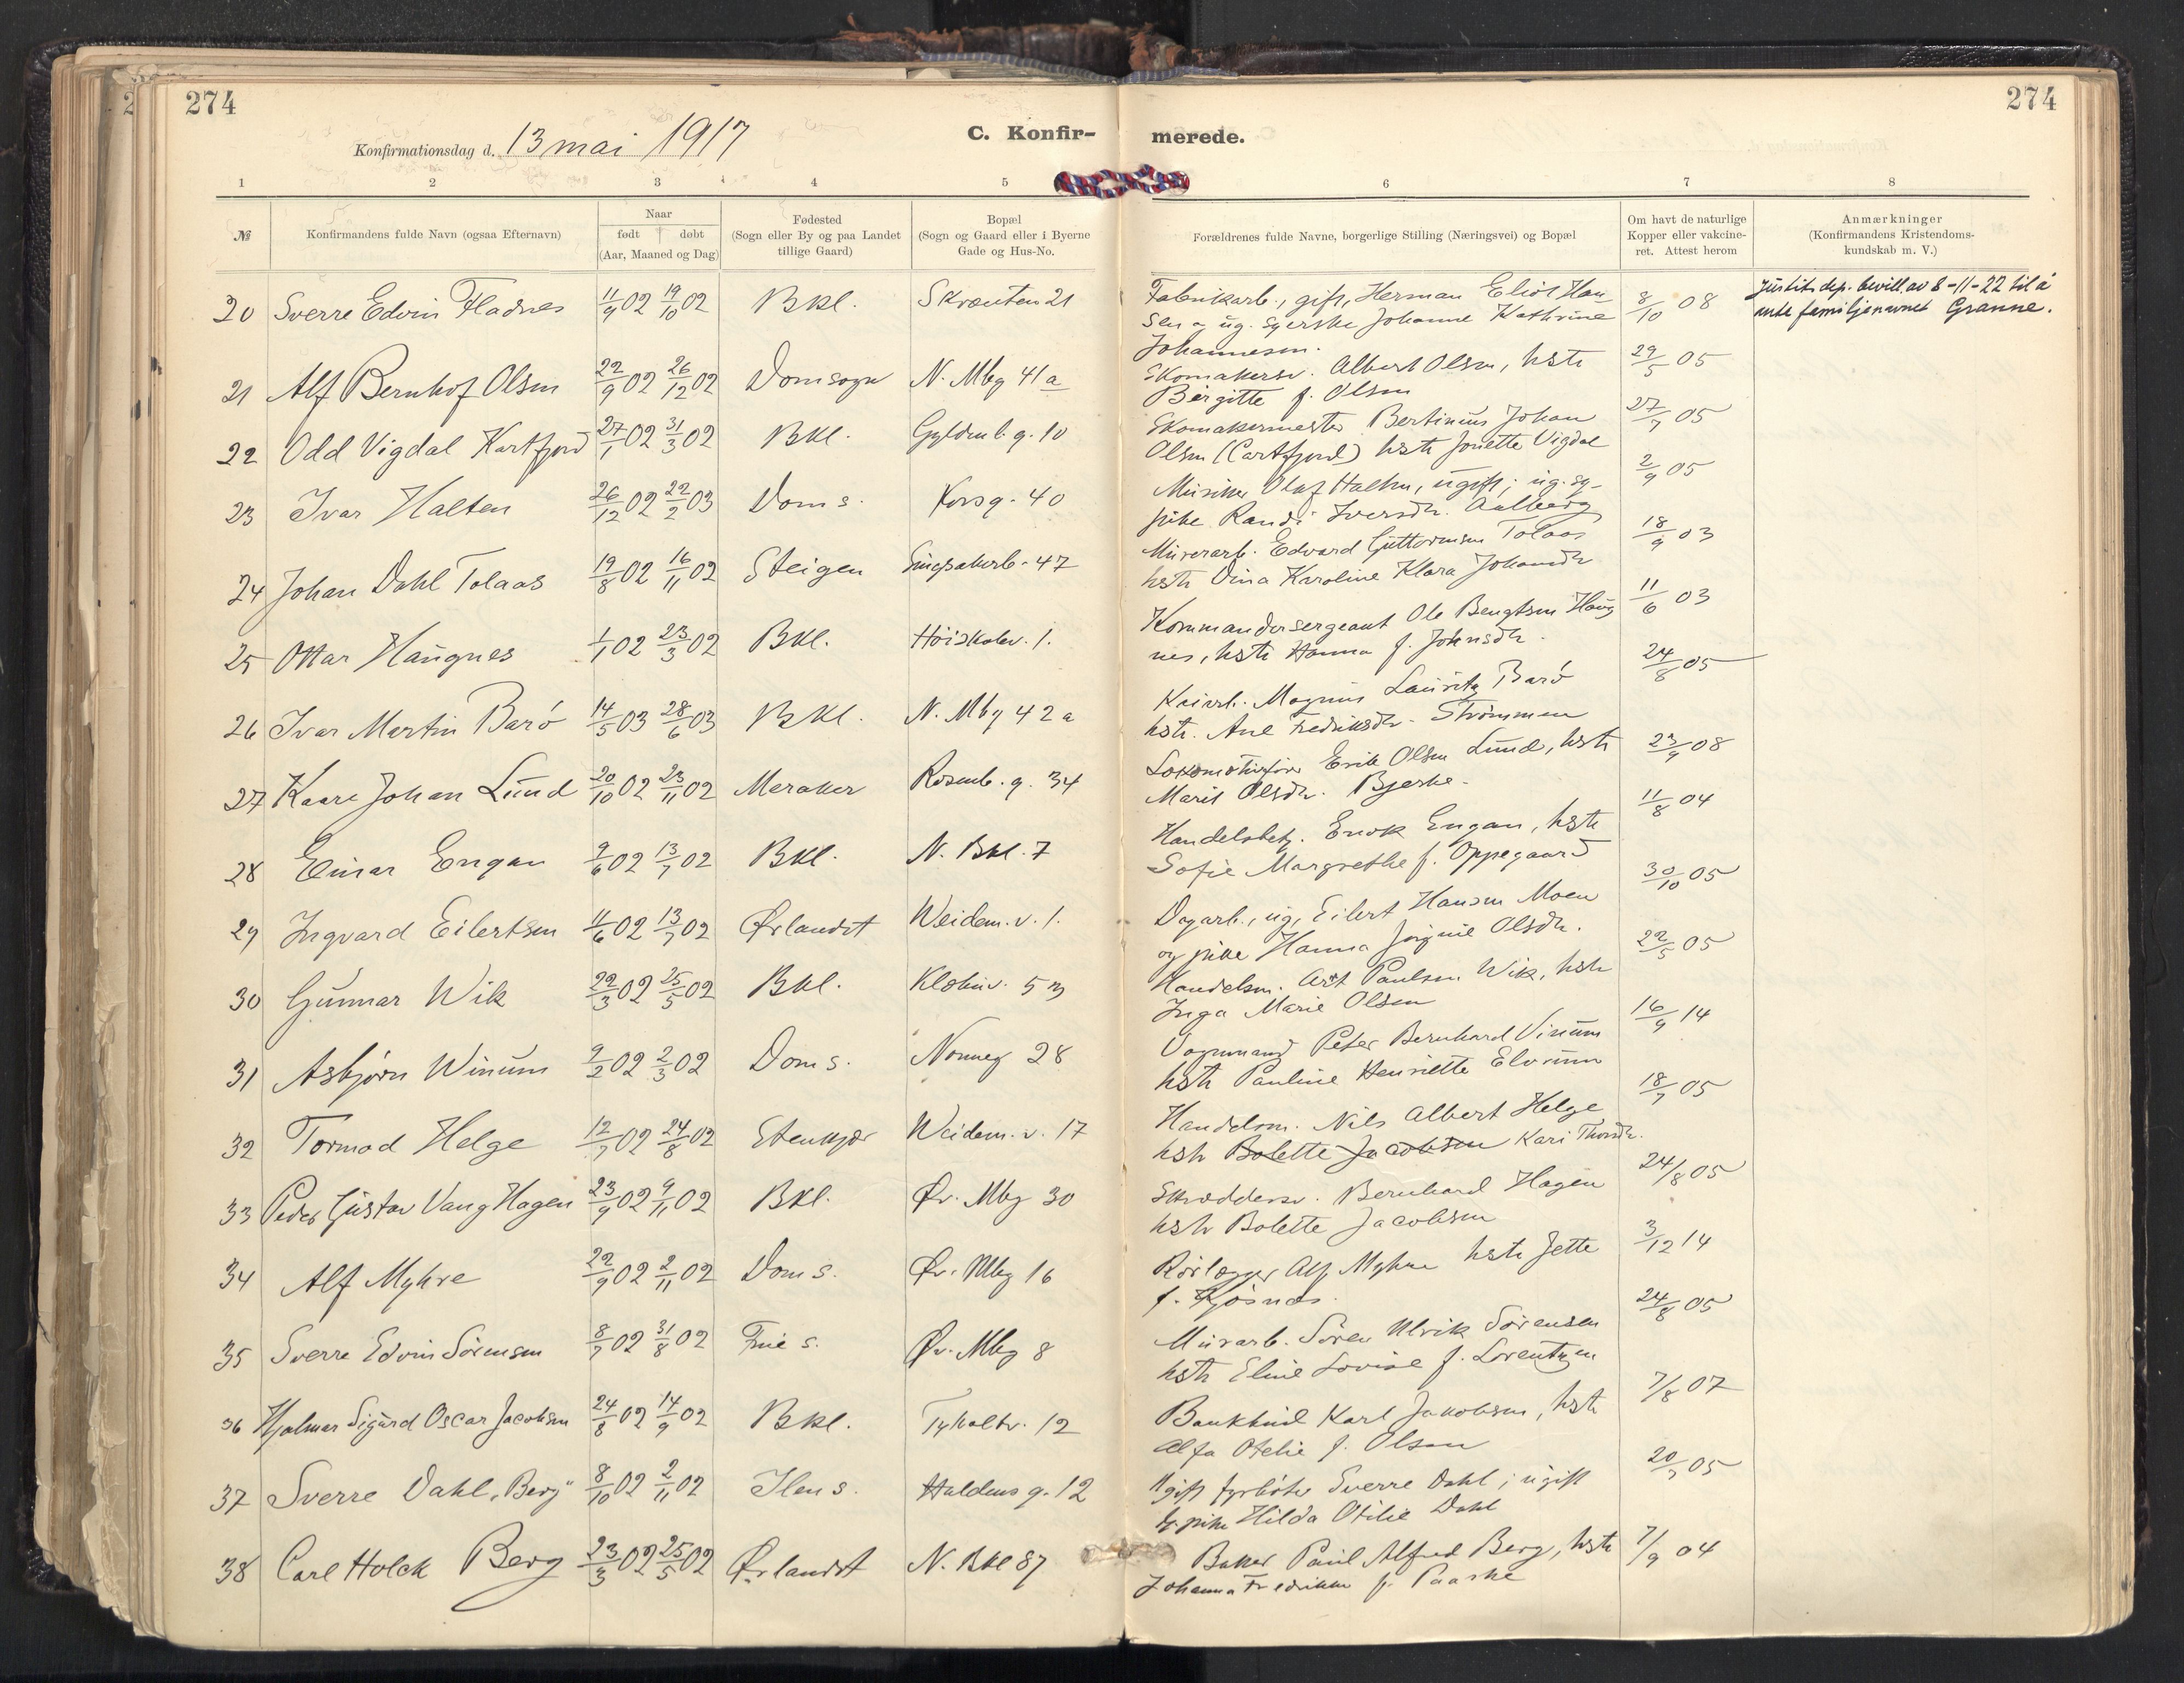 274
274
Konfirmationsdag d. 13 mai 1917
C. Konfir-
merede.
1 2 3 4 5 6 7 8
№
Konfirmandens fulde Navn (ogsaa Efternavn)
Naar
født døbt
(Aar, Maaned og Dag)
Fødested
(Sogn eller By og paa Landet
tillige Gaard)
Bopæl
(Sogn og Gaard eller i Byerne
Gade og Hus-No.
Forældrenes fulde Navne, borgerlige Stilling (Næringsvei) og Bopæl
Om havt de naturlige
Kopper eller vakcine-
ret. Attest herom
Anmærkninger
(Konfirmandens Kristendoms-
kundskab m. V.)
20 Sverre Edvin Fladnes 11/9 02 19/10 02 Bkl. Skrænten 21 Fabrikarb., gift, Herman Eliot Han 8/10 08 Justits dep. bevill. av 8-11-22 til å
sen og ug. syerske Johanne Kathrine
anta familjenavnet Granne.
Johannesen.
21 Alf Bernhof Olsen 22/9 02 26/12 02 Domsogn N. Mbg 41 a Skomakersv. Albert Olsen, hstr 29/5 05
Birgitte f. Olsen
22 Odd Vigdal Kartfjord 27/1 02 31/3 02 Bkl. Gyldenl. g. 10 Skomakermester Bertinius Johan 27/7 05
Olsen (Cartfjord) hstr Jonette Vigdal
23 Ivar Halten 26/12 02 22/2 03 Dom s. Korsg. 40 Musiker Olaf Halten, ugift; ug. sy- 2/9 05
pike Randi Iversdr. Aalberg
24 Johan Dahl Tolaas 19/8 02 16/11 02 Steigen Singsakerb. 47 Murerarb. Edvard Guttormsen Tolaas 18/9 03
hstr Dina Karoline Klara Johansdr
25 Ottar Haugnes 1/1 02 23/3 02 Bkl. Høiskolev. 1. Kommandersergeant Ole Bengtsen Haug 11/6 03
nes, hstr Hanna f. Johnsdr.
26 Ivar Martin Barø 14/5 03 28/6 03 Bkl. N. Mbg 42 a Kaiarb. Magnus Lauritz Barø 24/8 05
hstr. Ane Fredriksdr. Strømmen
27 Kaare Johan Lund 20/10 02 23/11 02 Meraker Rosenb. g. 34 Lokomotivfører Erik Olsen Lund, hstr 23/9 08
Marit Olsdr. Bjerke.
28 Einar Engan 9/6 02 13/7 02 Bkl. N. Bkl. 7 Handelsbetj. Enok Engan, hstr 11/8 04
Sofie Margrethe f. Oppegaard
29 Ingvard Eilertsen 11/6 02 13/7 02 Ørlandet Weidem. v. 1. Dagarb., ug, Eilert Hansen Moen 30/10 05
og pike Hanna Jørgine Olsdr.
30 Gunnar Wik 22/3 02 25/5 02 Bkl. Klæbuv. 5 Handelsm. Arnt Paulsen Wik, hstr 22/5 05
Inga Marie Olsen
31 Asbjørn Winum 9/2 02 2/3 02 Dom s. Nonneg 28 Vognmand Peter Bernhard Vinum 16/9 14
hstr Pauline Henriette Elvrum
32 Tormod Helge 12/7 02 24/8 02 Stenkjær Weidem. v. 17 Handelsm. Nils Albert Helge 18/7 05
hstr Bolette Jacobsen Kari Thorsdr.
33 Peder Gustav Vang Hagen 23/9 02 9/11 02 Bkl. Øv. Mbg 30 Skræddersv. Bernhard Hagen 24/8 05
hstr Bolette Jacobsen
34 Alf Myhre 22/9 02 2/11 02 Dom s. Øv. Mbg 16 Rørlægger Alf Myhre hstr Jette 3/12 14
f. Kjøsnæs.
35 Sverre Edvin Sørensen 8/7 02 31/8 02 Frue s. Øv. Mbg 8 Murarb. Søren Ulrik Sørensen 24/8 05
hstr Eline Lovise f. Lorentzen
36 Hjalmar Sigurd Oscar Jacobsen 24/8 02 14/9 02 Bkl. Tyholtv. 12 Bankbud Karl Jakobsen, hstr 7/8 07
Alfa Otelie f. Olsen
37 Sverre Dahl „Berg" 8/10 02 2/11 02 Ilen s. Huldens g. 12 Ugift fyrbøter Sverre Dahl; ugift 20/7 05
pike Hilda Otilie Dahl
38 Carl Holck Berg 23/3 02 25/5 02 Ørlandet N. Bkl 87 Baker Paul Alfred Berg, hstr 7/9 04
Johanna Fredrikke f. Paaske